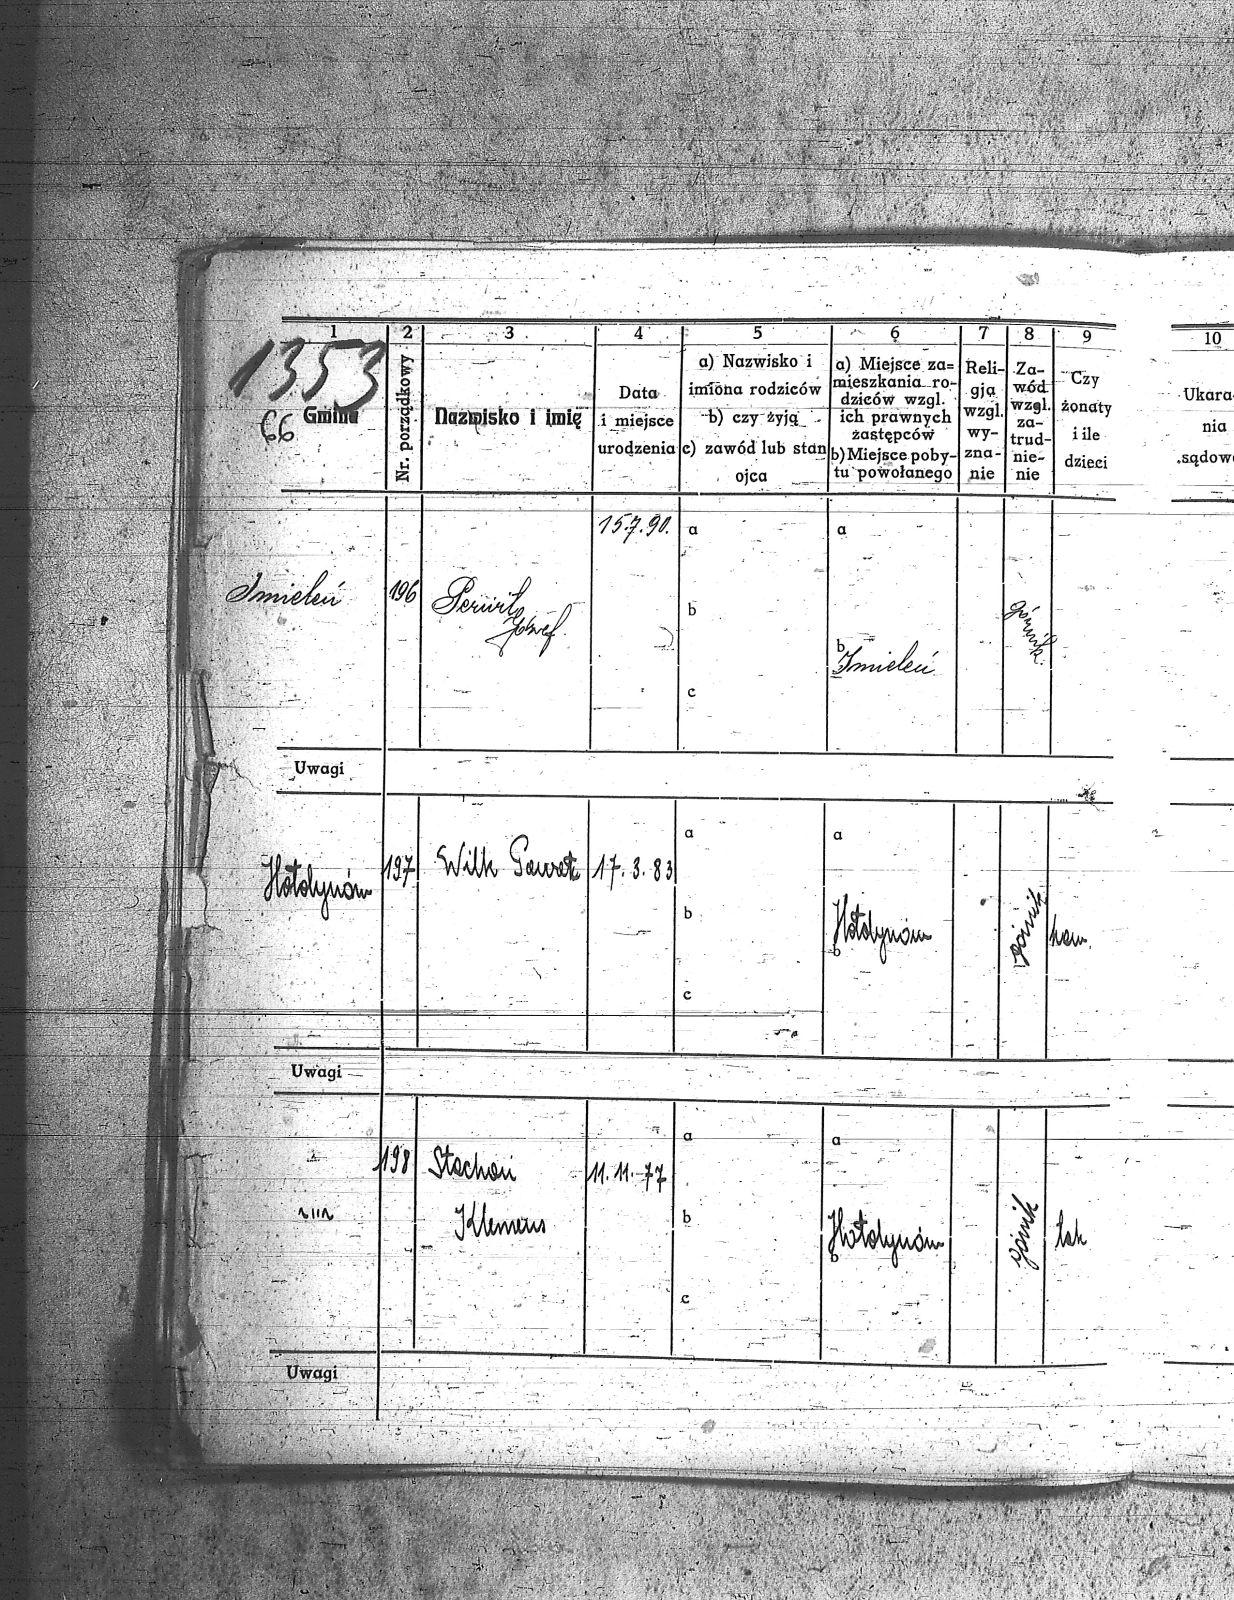 1353
66
1 2 3 4 5 6 7 8 9 10
Gmina
Nr. porządkowy
Nazwisko i imię
Data
i miejsce
urodzenia
a) Nazwisko i
imiona rodziców
b) czy żyją
c) zawód lub stan
ojca
a) Miejsce za=
mieszkania ro-
dziców wzgl.
ich prawnych
zastępców
b) Miejsce poby-
tu powołanego
Reli-
gja
wzgl.
wy-
zna-
nie
Za-
wód
wzgl.
za-
trud-
nie-
nie
Czy
żonaty
i ile
dzieci
Ukara-
nia
sądowe
Imieleń
196
Józef
15.7.90.
a
b
c
a
b
Imieleń
górnik
Uwagi
Hołdynów
197
Wilk Paweł
17.3.83
a
b
c
a
Hołdynów
b
górnik
Uwagi
198
Stachoń
Klemens
11.11.77
a
b
c
a
Hołdynów
b
górnik
tak
Uwagi